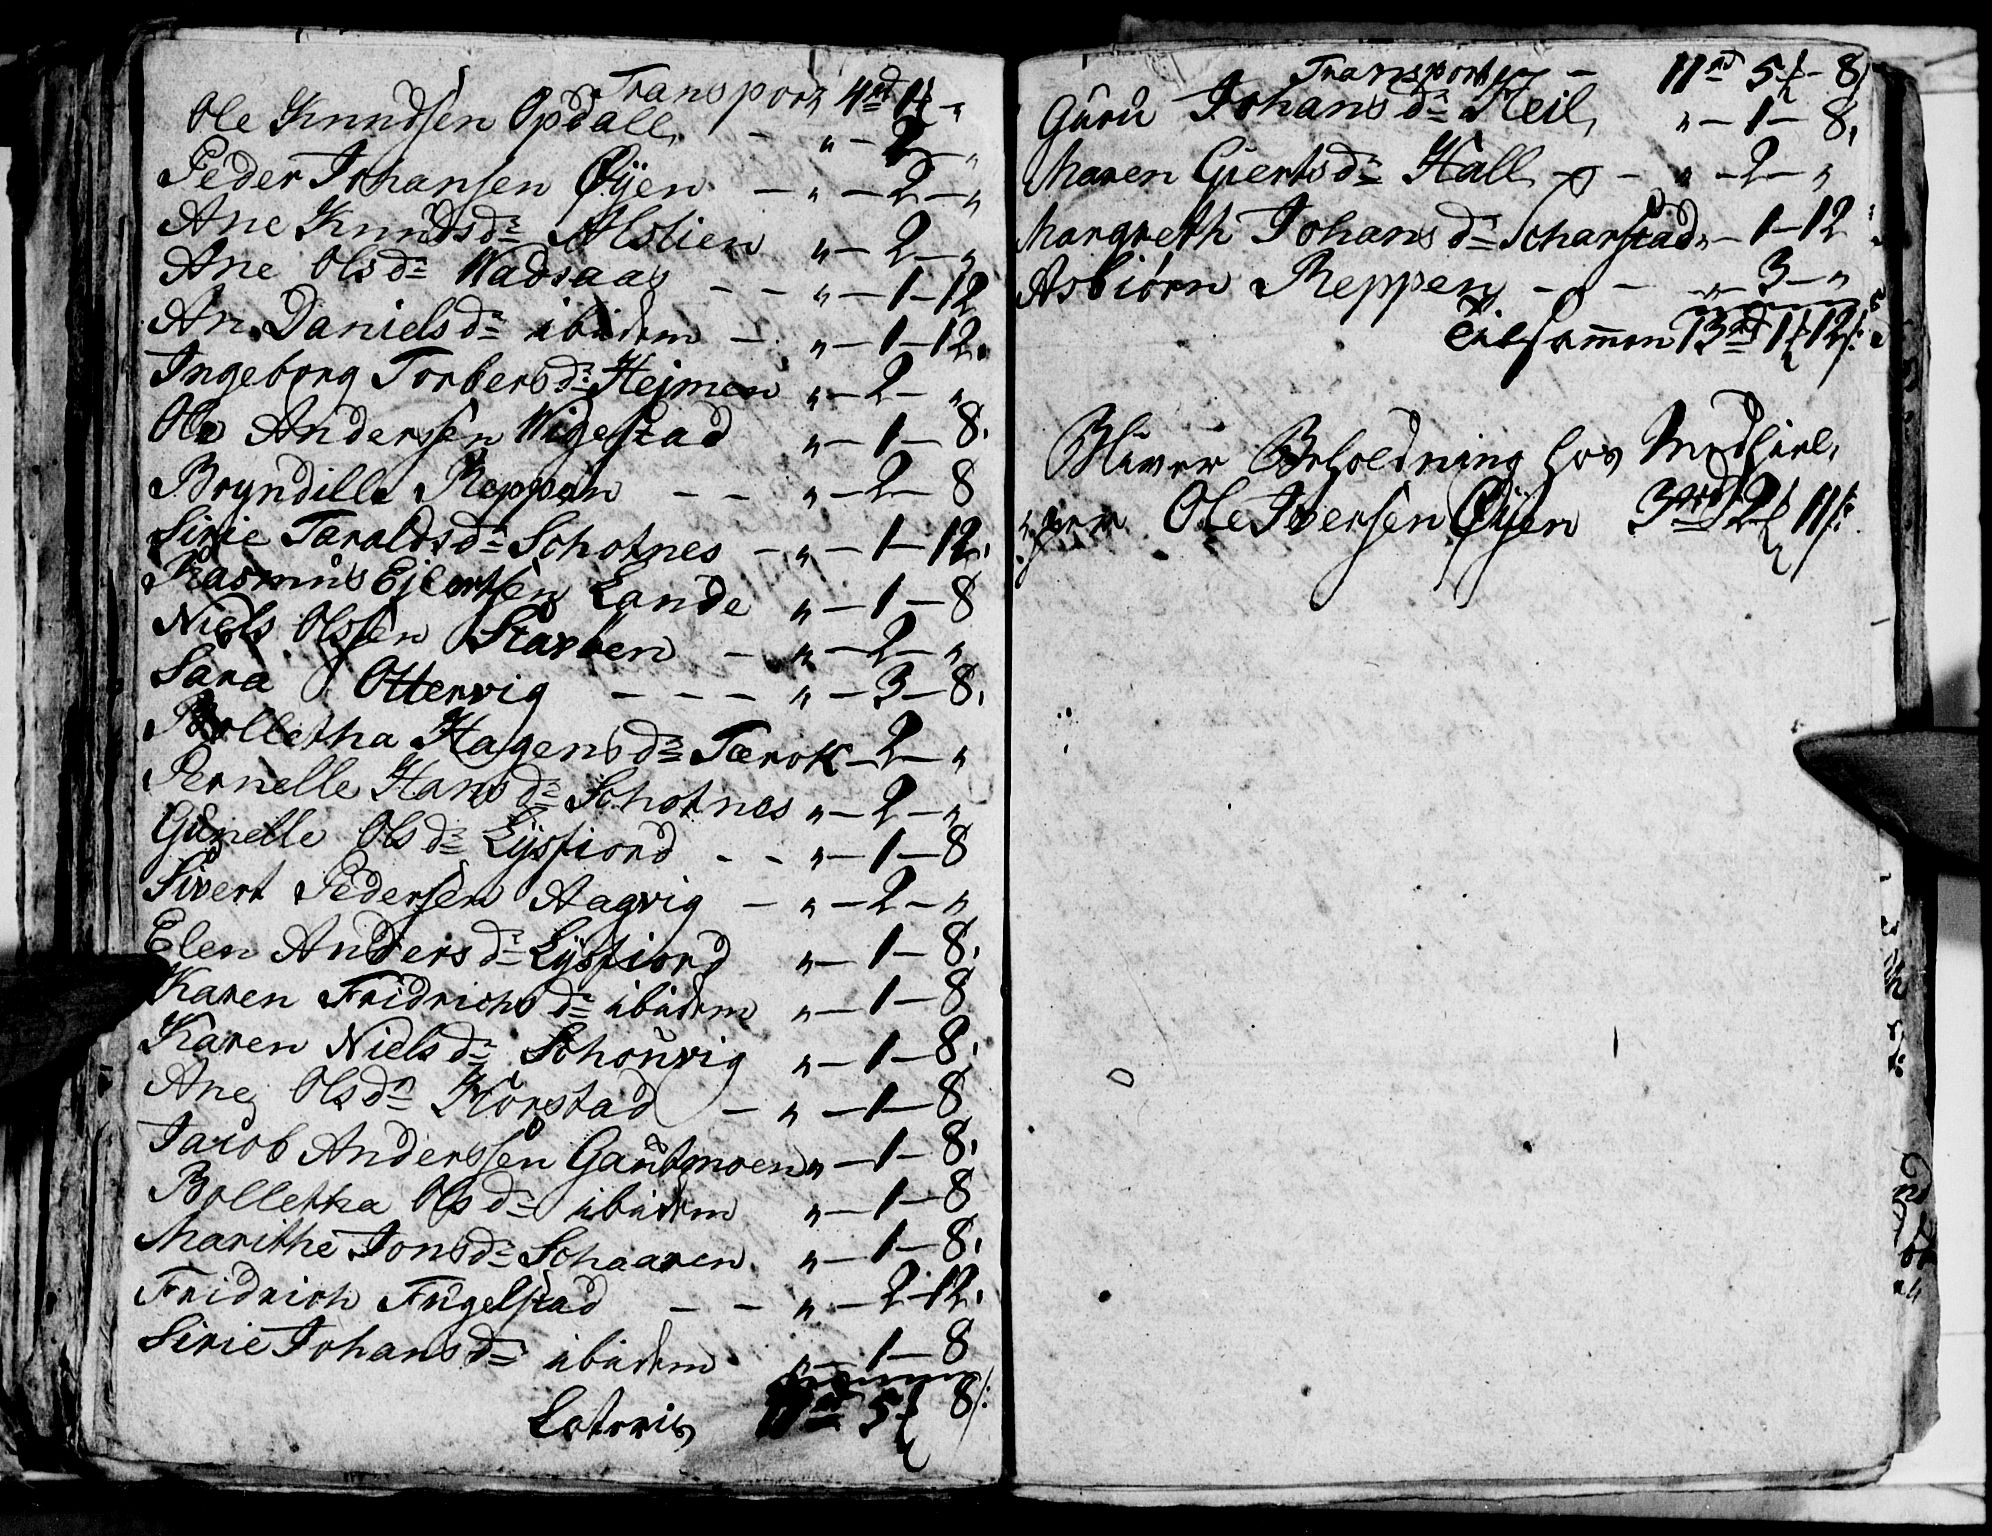 Transport 4rd 4 "
Ole Knudsen Opdall, - " - 2 - "
Peder Johansen Øÿen - " - 2 - "
Ane Knudsdr Alstien " - 2 - "
Ane Olsdr Wadsaas - - " - 1 - 12
An. Danielsdr ibidem - " - 1 - 12.
Ingeborg Torbersdr Hejmen " - 2 - "
Ole Andersen Wigestad " - 1 - 8.
Bryndille Reppen - - " - 2 - 8
Sirie Taraldsdr Schotnes - " - 1 - 12.
Rasmus Ejlertsen Lande " - 1 - 8
Niels Olsen Starben - " - 2 - "
Sara Ottervig - - - " - 3 - 8.
Bolletha Hagensdr Tærok - 2 - "
Pernelle Hansdr Schotnes " - 2 - "
Gunelle Olsdr Lÿsfiord - - " - 1 - 8
Sivert Pedersen Aagvig - " - 2 - "
Elen Andersdr Lÿsfiord " - 1 - 8.
Karen Fridrichsdr ibidem " - 1 - 8
Karen Nielsdr Schoüvig " - 1 - 8.
Ane Olsdr Korstad - " - 1 - 8
Jacob Anderssen Gaütmoen " - 1 - 8.
Bolletha Olsdr ibidem " - 1 - 8
Marithe Jonsdr Schaaren " - 1 - 8.
Fridrich Fugelstad - - " - 2 - 12.
Sirie Johansdr ibidem " - 1 - 8
Lateris 11rd 5 8
Transport - 11rd 5 - 8
Gurü Johansdr Heil, " - 1 - 8.
Maren Giertsdr Hall - - " - 2 - "
Margreth Johansdr Scharstad " - 1 - 12
Asbiørn Reppen - - " - 3 - "
Tilsammen 13rd 1 12
Bliver Beholdning hos Medhiel,
per Ole Iversen Øÿen 3rd 2 11